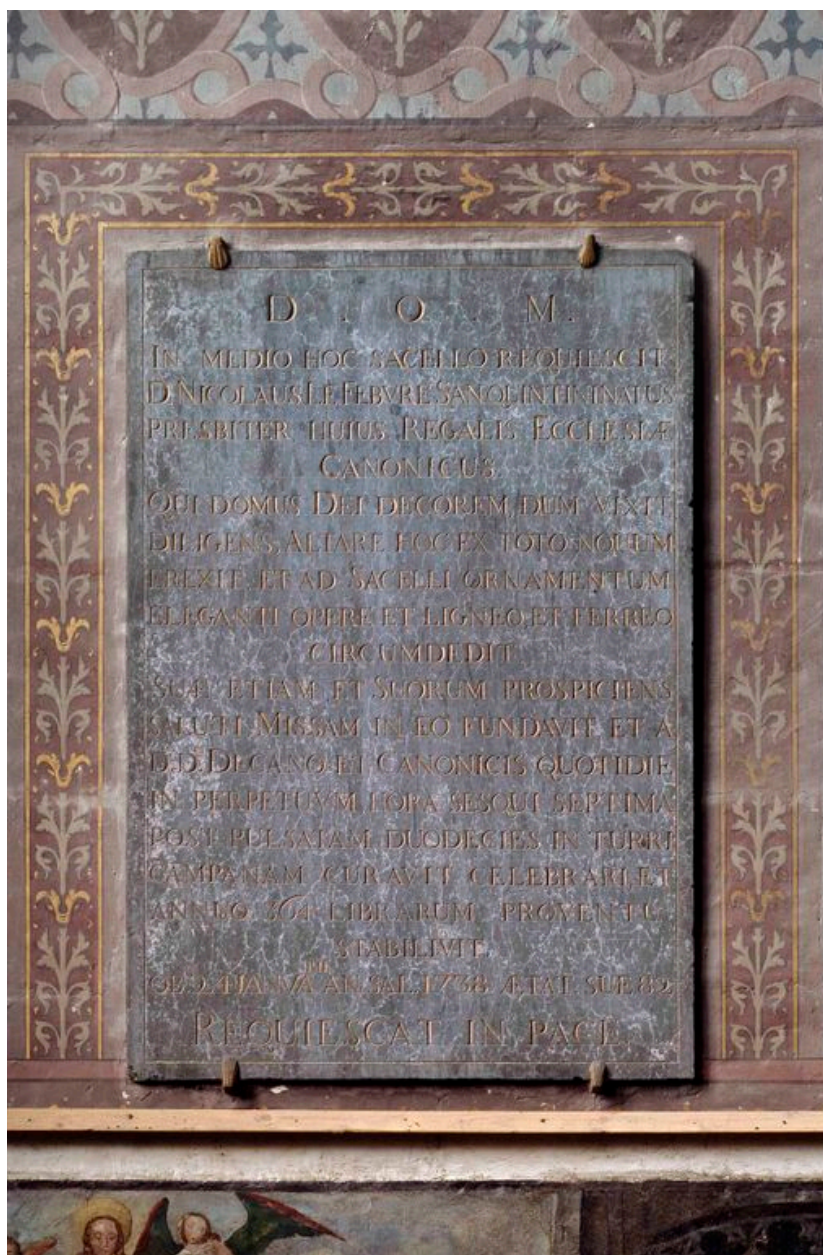 D . O . M .
IN MEDIO HOC SACELLO REQUIESCIT
D. NICOLAUS LE FEBVRE SANQUINTININATUS
PRESBITER HUIUS REGALIS ECCLESIÆ
CANONICUS
QUI DOMUS DEI DECOREM, DUM VIXIT
DILIGENS, ALTARE HOC EX TOTO NOUUM
EREXIT, ET AD SACELLI ORNAMENTUM
ELEGANTI OPERE ET LIGNEO, ET FERREO
CIRCUMDEDIT
SUÆ ETIAM ET SUORUM PROSPICIENS
SALUTI MISSAM IN EO FUNDAVIT ET A
D.D. DECANO ET CANONICIS QUOTIDIE
IN PERPETUVM HORA SESQUI SEPTIMA
POST PULSATAM DUODECIES IN TURRI
CAMPANAM CURAVIT CELEBRARI, ET
ANNUO 364 LIBRARUM PROVENTU
STABILIVIT.
OB. JANUA AN. SAL. 1738 ÆTAT. SUÆ 82
REQUIESCAT IN PACE